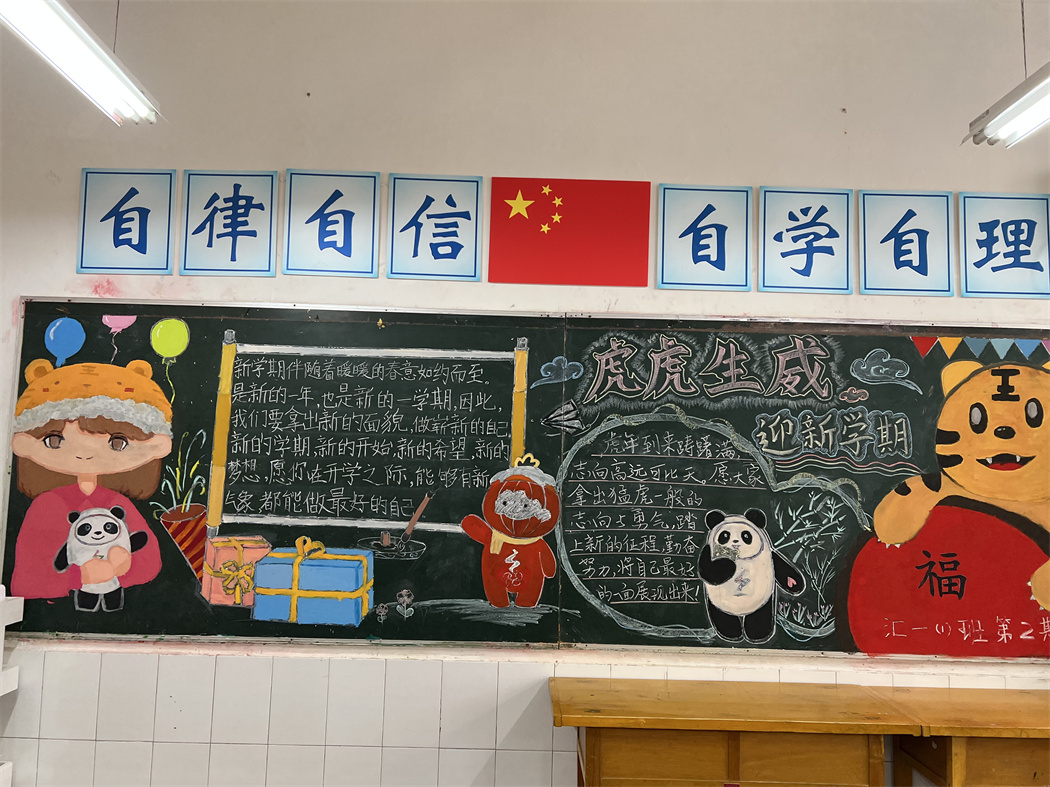 自律自信
自学自理
新学期伴随着暖暖的春意如约而至。
是新的一年,也是新的一学期,因此,
我们要拿出新的面貌,做崭新的自己
新的学期,新的开始,新的希望,新的
梦想,愿你在开学之际,能够有新
气象,都能做最好的自己
虎虎生威
迎新学期
虎年到来踌躇满
志向高远可比天。愿大家
拿出猛虎一般的
志向与勇气,踏
上新的征程,勤奋
努力,将自己最好
的一面展现出来!
王
福
汇一(1)班第2期